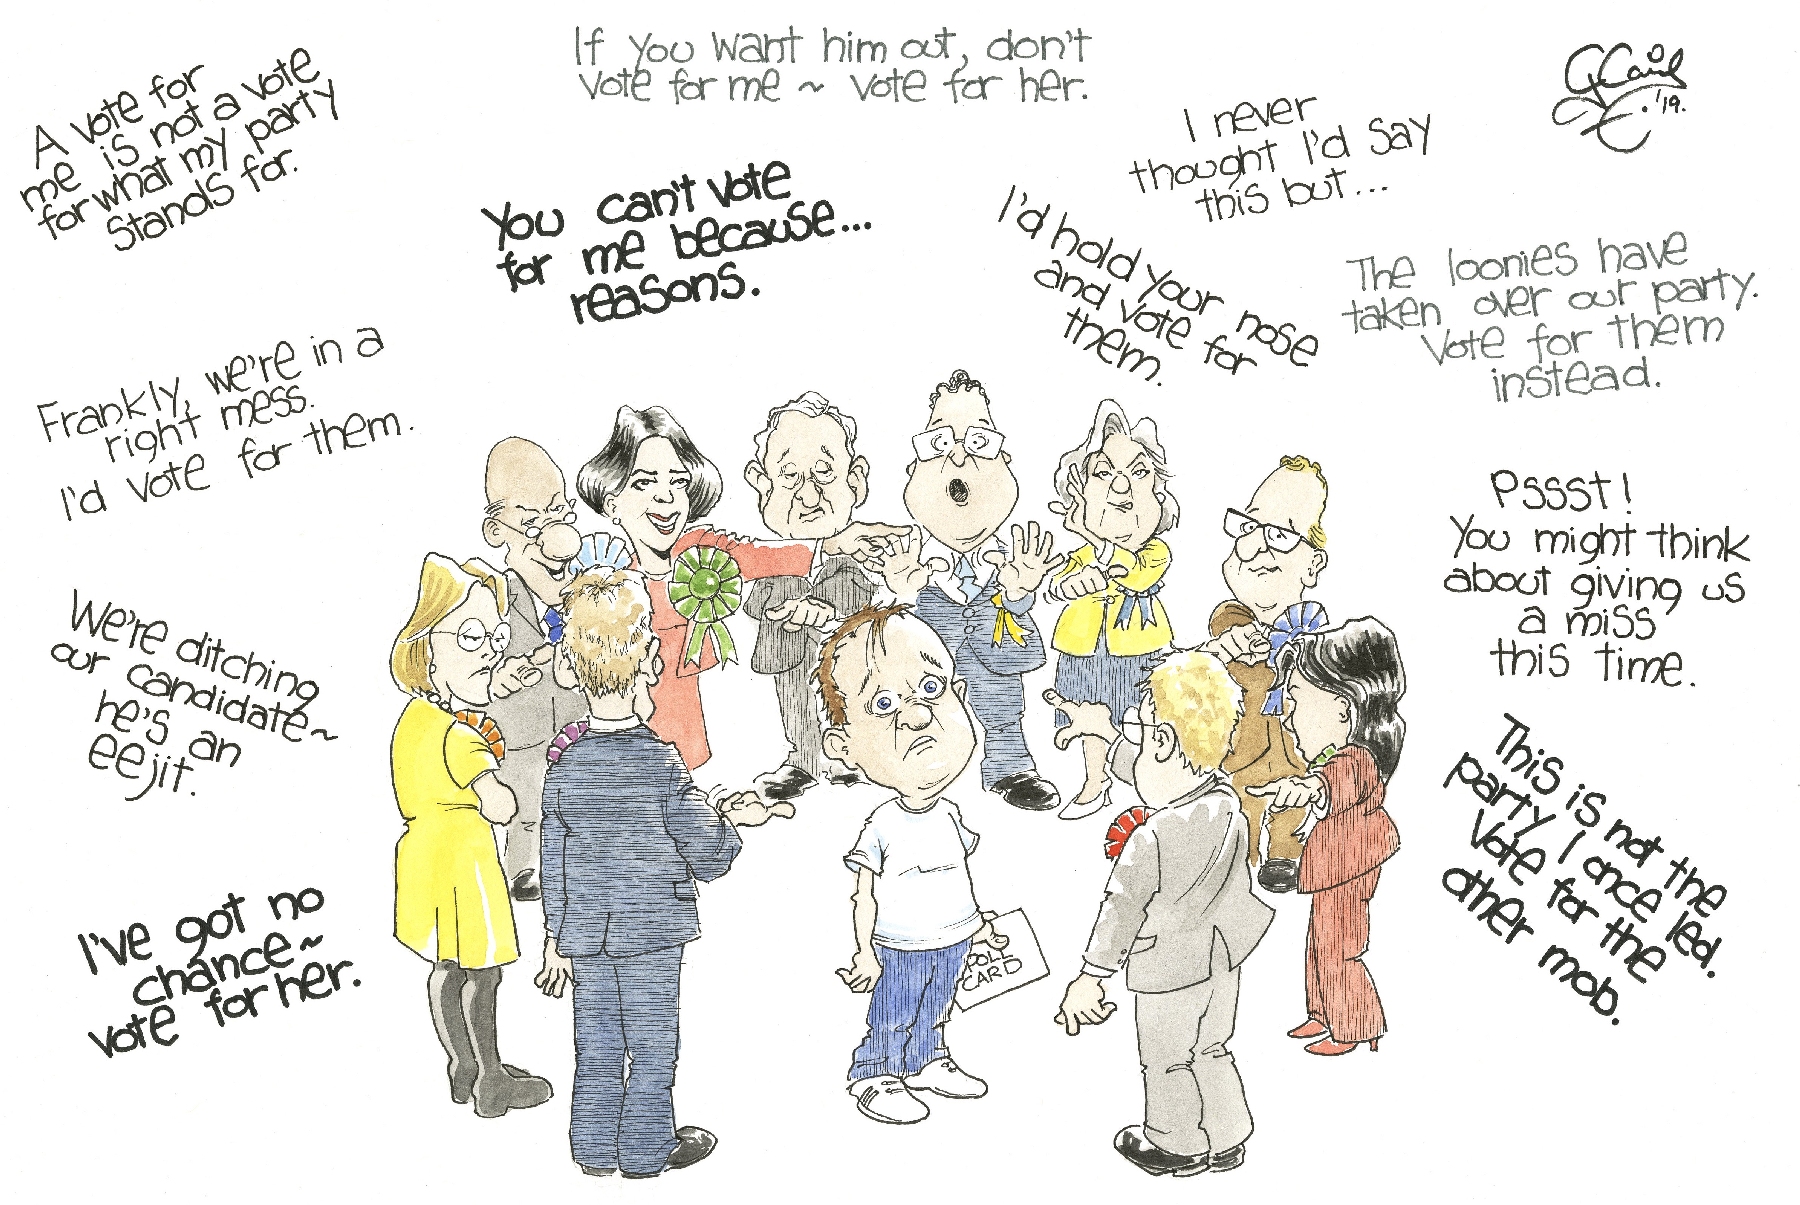 If you want him out, don't
vote for me ~ vote for her.
A vote for
me is not a vote
for what my party
stands for.
You can't vote
for me because...
reasons.
I never
thought I'd say
this but...
I'd hold your nose
and vote for
them.
The loonies have
taken over our party.
Vote for them
instead.
Frankly, we're in a
right mess.
I'd vote for them.
Pssst!
You might think
about giving us
a miss
this time.
We're ditching
our candidate ~
he's an
eejit.
This is not the
party I once led.
Vote for the
other mob.
I've got no
chance ~
vote for her.
POLL
CARD
'19.